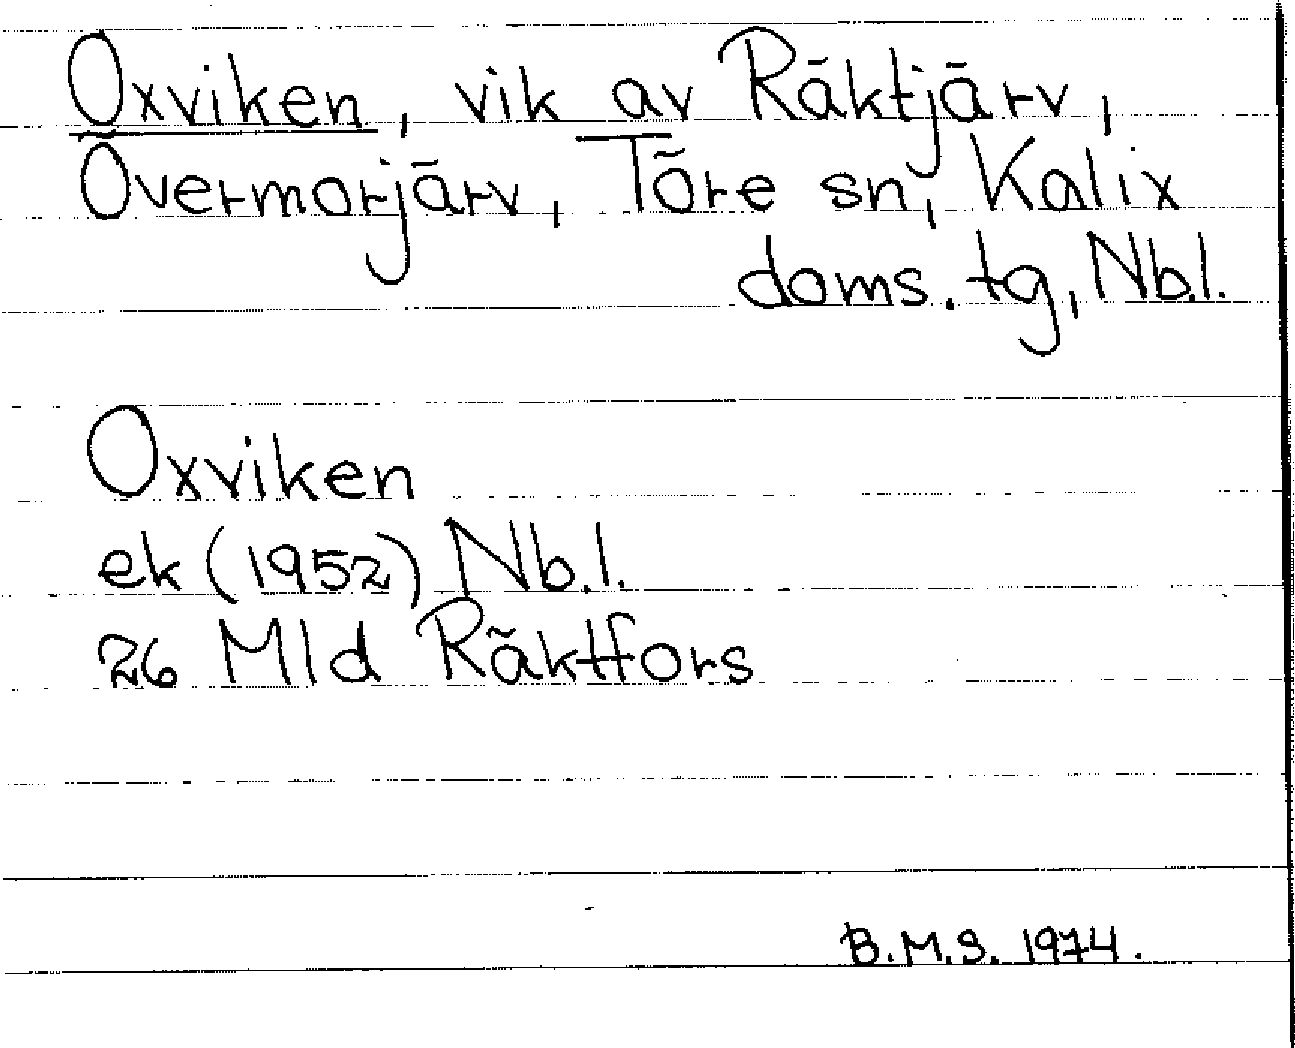 Oxviken, vik av Räktjärv,
Övermorjärv, Töre sn, Kalix
doms. tg, Nb.l.
Oxviken
ek (1952) Nb.l.
26 Mld Räktfors
B.M.S. 1974.